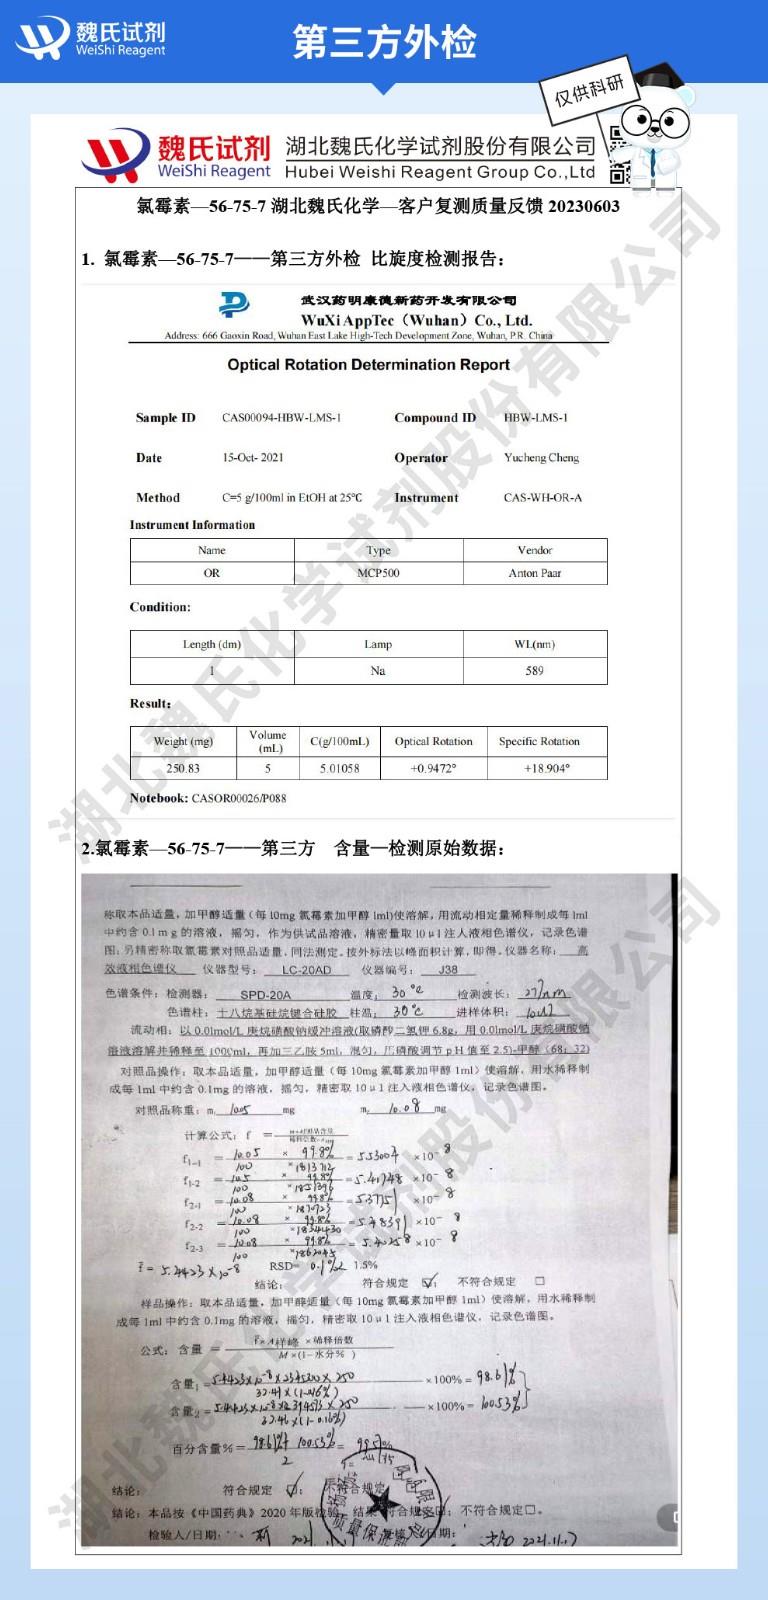 魏氏试剂
WeiShi Reagent
第三方外检
仅供科研
魏氏试剂
WeiShi Reagent
湖北魏氏化学试剂股份有限公司
Hubei Weishi Reagent Group Co.,Ltd
氯霉素—56-75-7 湖北魏氏化学—客户复测质量反馈 20230603
1. 氯霉素—56-75-7——第三方外检 比旋度检测报告：
武汉药明康德新药开发有限公司
WuXi AppTec（Wuhan）Co., Ltd.
Address: 666 Gaoxin Road, Wuhan East Lake High-Tech Development Zone, Wuhan, P.R. China
Optical Rotation Determination Report
Sample ID CAS00094-HBW-LMS-1 Compound ID HBW-LMS-1
Date 15-Oct- 2021 Operator Yucheng Cheng
Method C=5 g/100ml in EtOH at 25℃ Instrument CAS-WH-OR-A
Instrument Information
Name Type Vendor
OR MCP500 Anton Paar
Condition:
Length (dm) Lamp WL(nm)
1 Na 589
Result:
Weight (mg) Volume (mL) C(g/100mL) Optical Rotation Specific Rotation
250.83 5 5.01058 +0.9472° +18.904°
Notebook: CASOR00026/P088
2.氯霉素—56-75-7——第三方 含量—检测原始数据：
称取本品适量，加甲醇适量（每 10mg 氯霉素加甲醇 1ml)使溶解，用流动相定量稀释制成每 1ml
中约含 0.1mg 的溶液，摇匀，作为供试品溶液，精密量取 10μl 注入液相色谱仪，记录色谱
图；另精密称取氯霉素对照品适量，同法测定。按外标法以峰面积计算，即得。仪器名称： 高
效液相色谱仪 仪器型号： LC-20AD 仪器编号： J38
色谱条件：检测器： SPD-20A 温度： 30℃ 检测波长： 277nm
色谱柱：十八烷基硅烷键合硅胶 柱温： 30℃ 进样体积： 10μl
流动相：以 0.01mol/L 庚烷磺酸钠缓冲溶液(取磷酸二氢钾 6.8g，用 0.01mol/L 庚烷磺酸钠
溶液溶解并稀释至 1000ml，再加三乙胺 5ml，混匀，用磷酸调节 pH 值至 2.5)-甲醇（68：32）
对照品操作：取本品适量，加甲醇适量（每 10mg 氯霉素加甲醇 1ml）使溶解，用水稀释制
成每 1ml 中约含 0.1mg 的溶液，摇匀，精密取 10μl 注入液相色谱仪，记录色谱图。
对照品称重：m₁ 10.05 mg m₂ 10.08 mg
计算公式：f =
f1-1 = 10.05 × 99.8% / 100 × 1813712 = 5.53004 ×10⁻⁸
f1-2 = 99.8% / 100 ×
f2-1 = 10.08 × 99.8% / 100 × ×10⁻⁸
f2-2 = 10.08 × 99.8% / 100 × = 5.48391 ×10⁻⁸
f2-3 = 10.08 × 99.8% / 100 × ×10⁻⁸
f̄ = 5.4423×10⁻⁸ RSD= 1.5%
结论： 符合规定 ☑； 不符合规定 □
样品操作：取本品适量，加甲醇适量（每 10mg 氯霉素加甲醇 1ml）使溶解，用水稀释制
成每 1ml 中约含 0.1mg 的溶液，摇匀，精密取 10μl 注入液相色谱仪，记录色谱图。
公式：含量 = ×稀释倍数 / M×(1-水分%)
含量₁ = ×100% = 98.61%
含量₂ = ×100% = 100.53%
百分含量%= 98.61%+100.53% / 2 =
结论： 符合规定 ☑； 不符合规定
结论：本品按《中国药典》2020 年版检验，结果 符合规定 不符合规定□。
检验人/日期： 2021.11.17
湖北魏氏化学试剂股份有限公司
湖北魏氏化学试剂股份有限公司